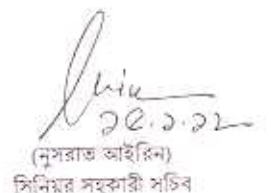 ২৫.১.২২
(নুসরাত আইরিন)
সিনিয়র সহকারী সচিব